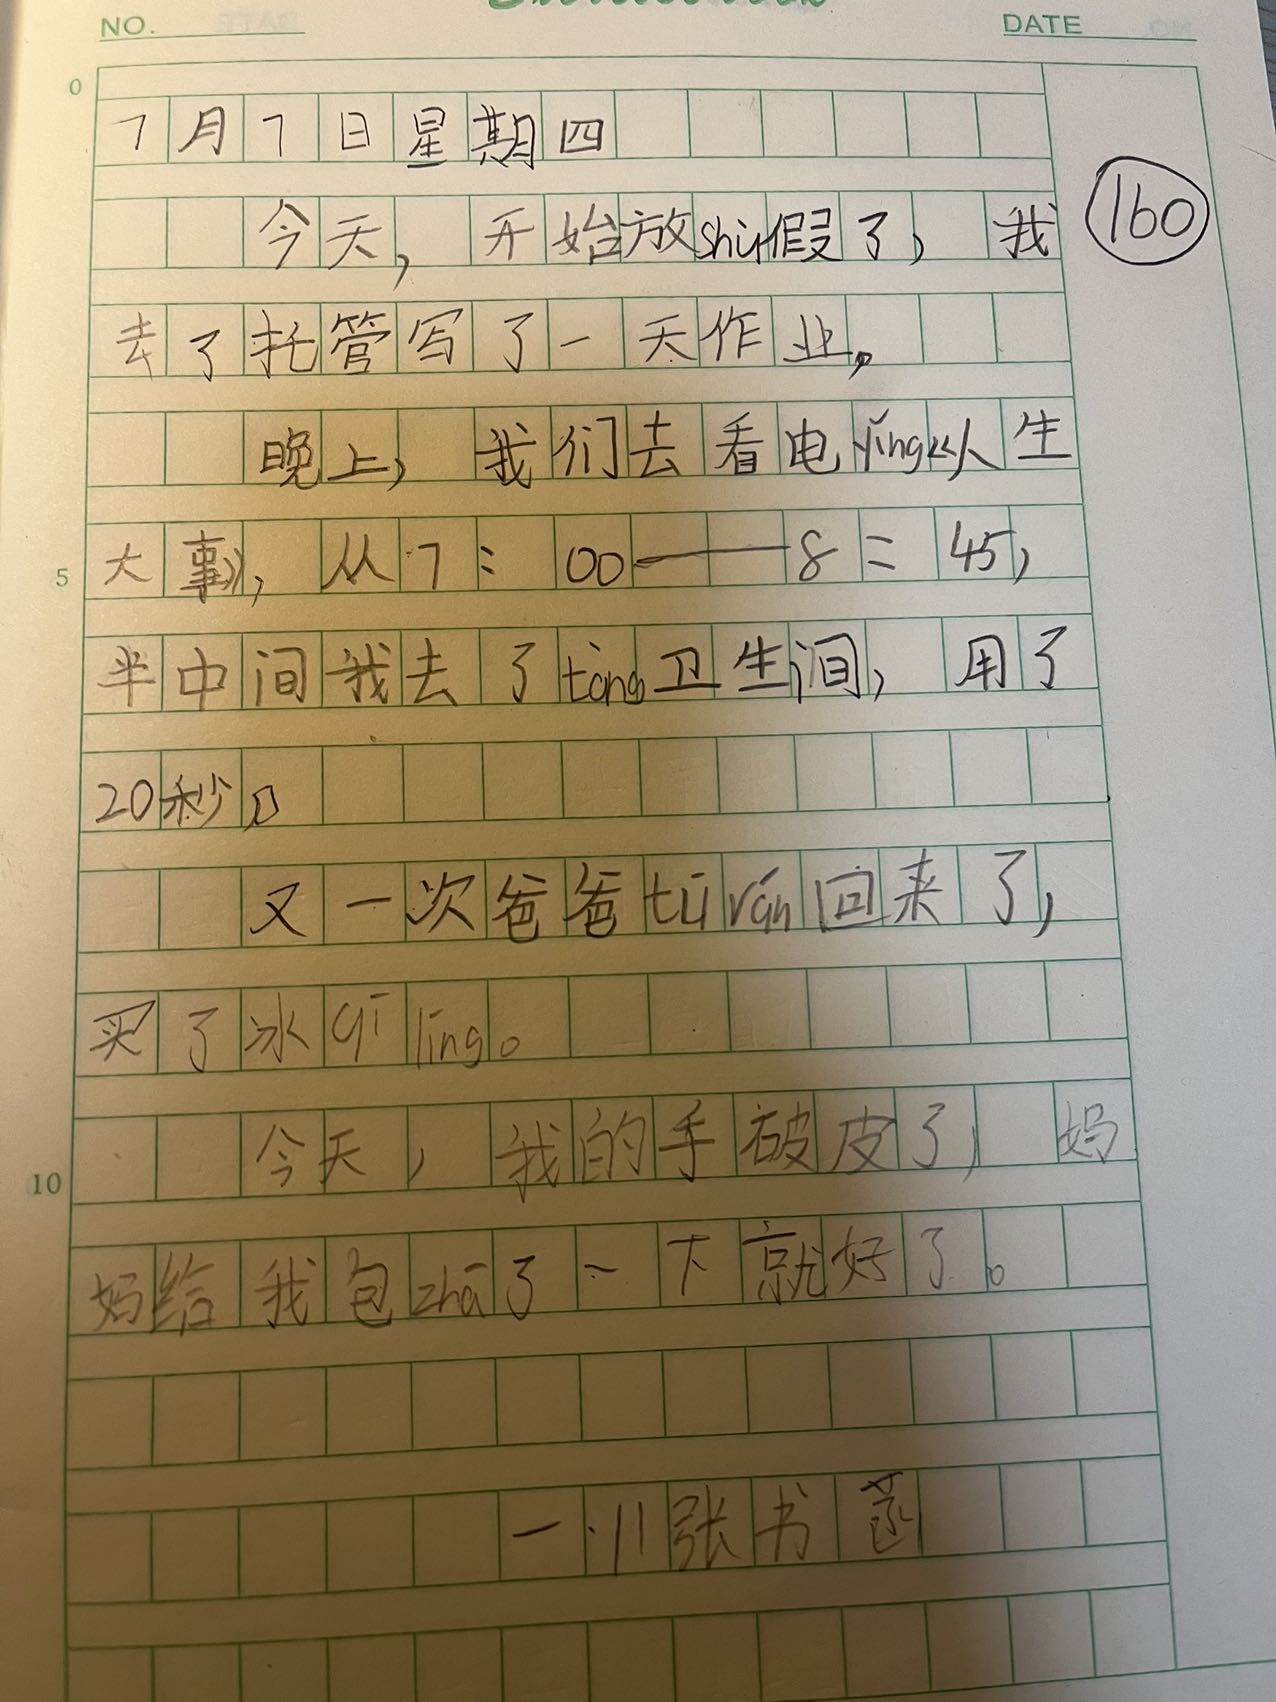 NO.
DATE
0
7月7日星期四
今天，开始放shǔ假了，我
160
去了托管写了一天作业。
晚上，我们去看电yǐng《人生
5
大事》，从7：00——8：45，
半中间我去了tàng卫生间，用了
20秒。
又一次爸爸tū rán回来了，
买了冰qí líng。
10
今天，我的手破皮了，妈
妈给我包zhā了一下就好了。
一.11张书菡